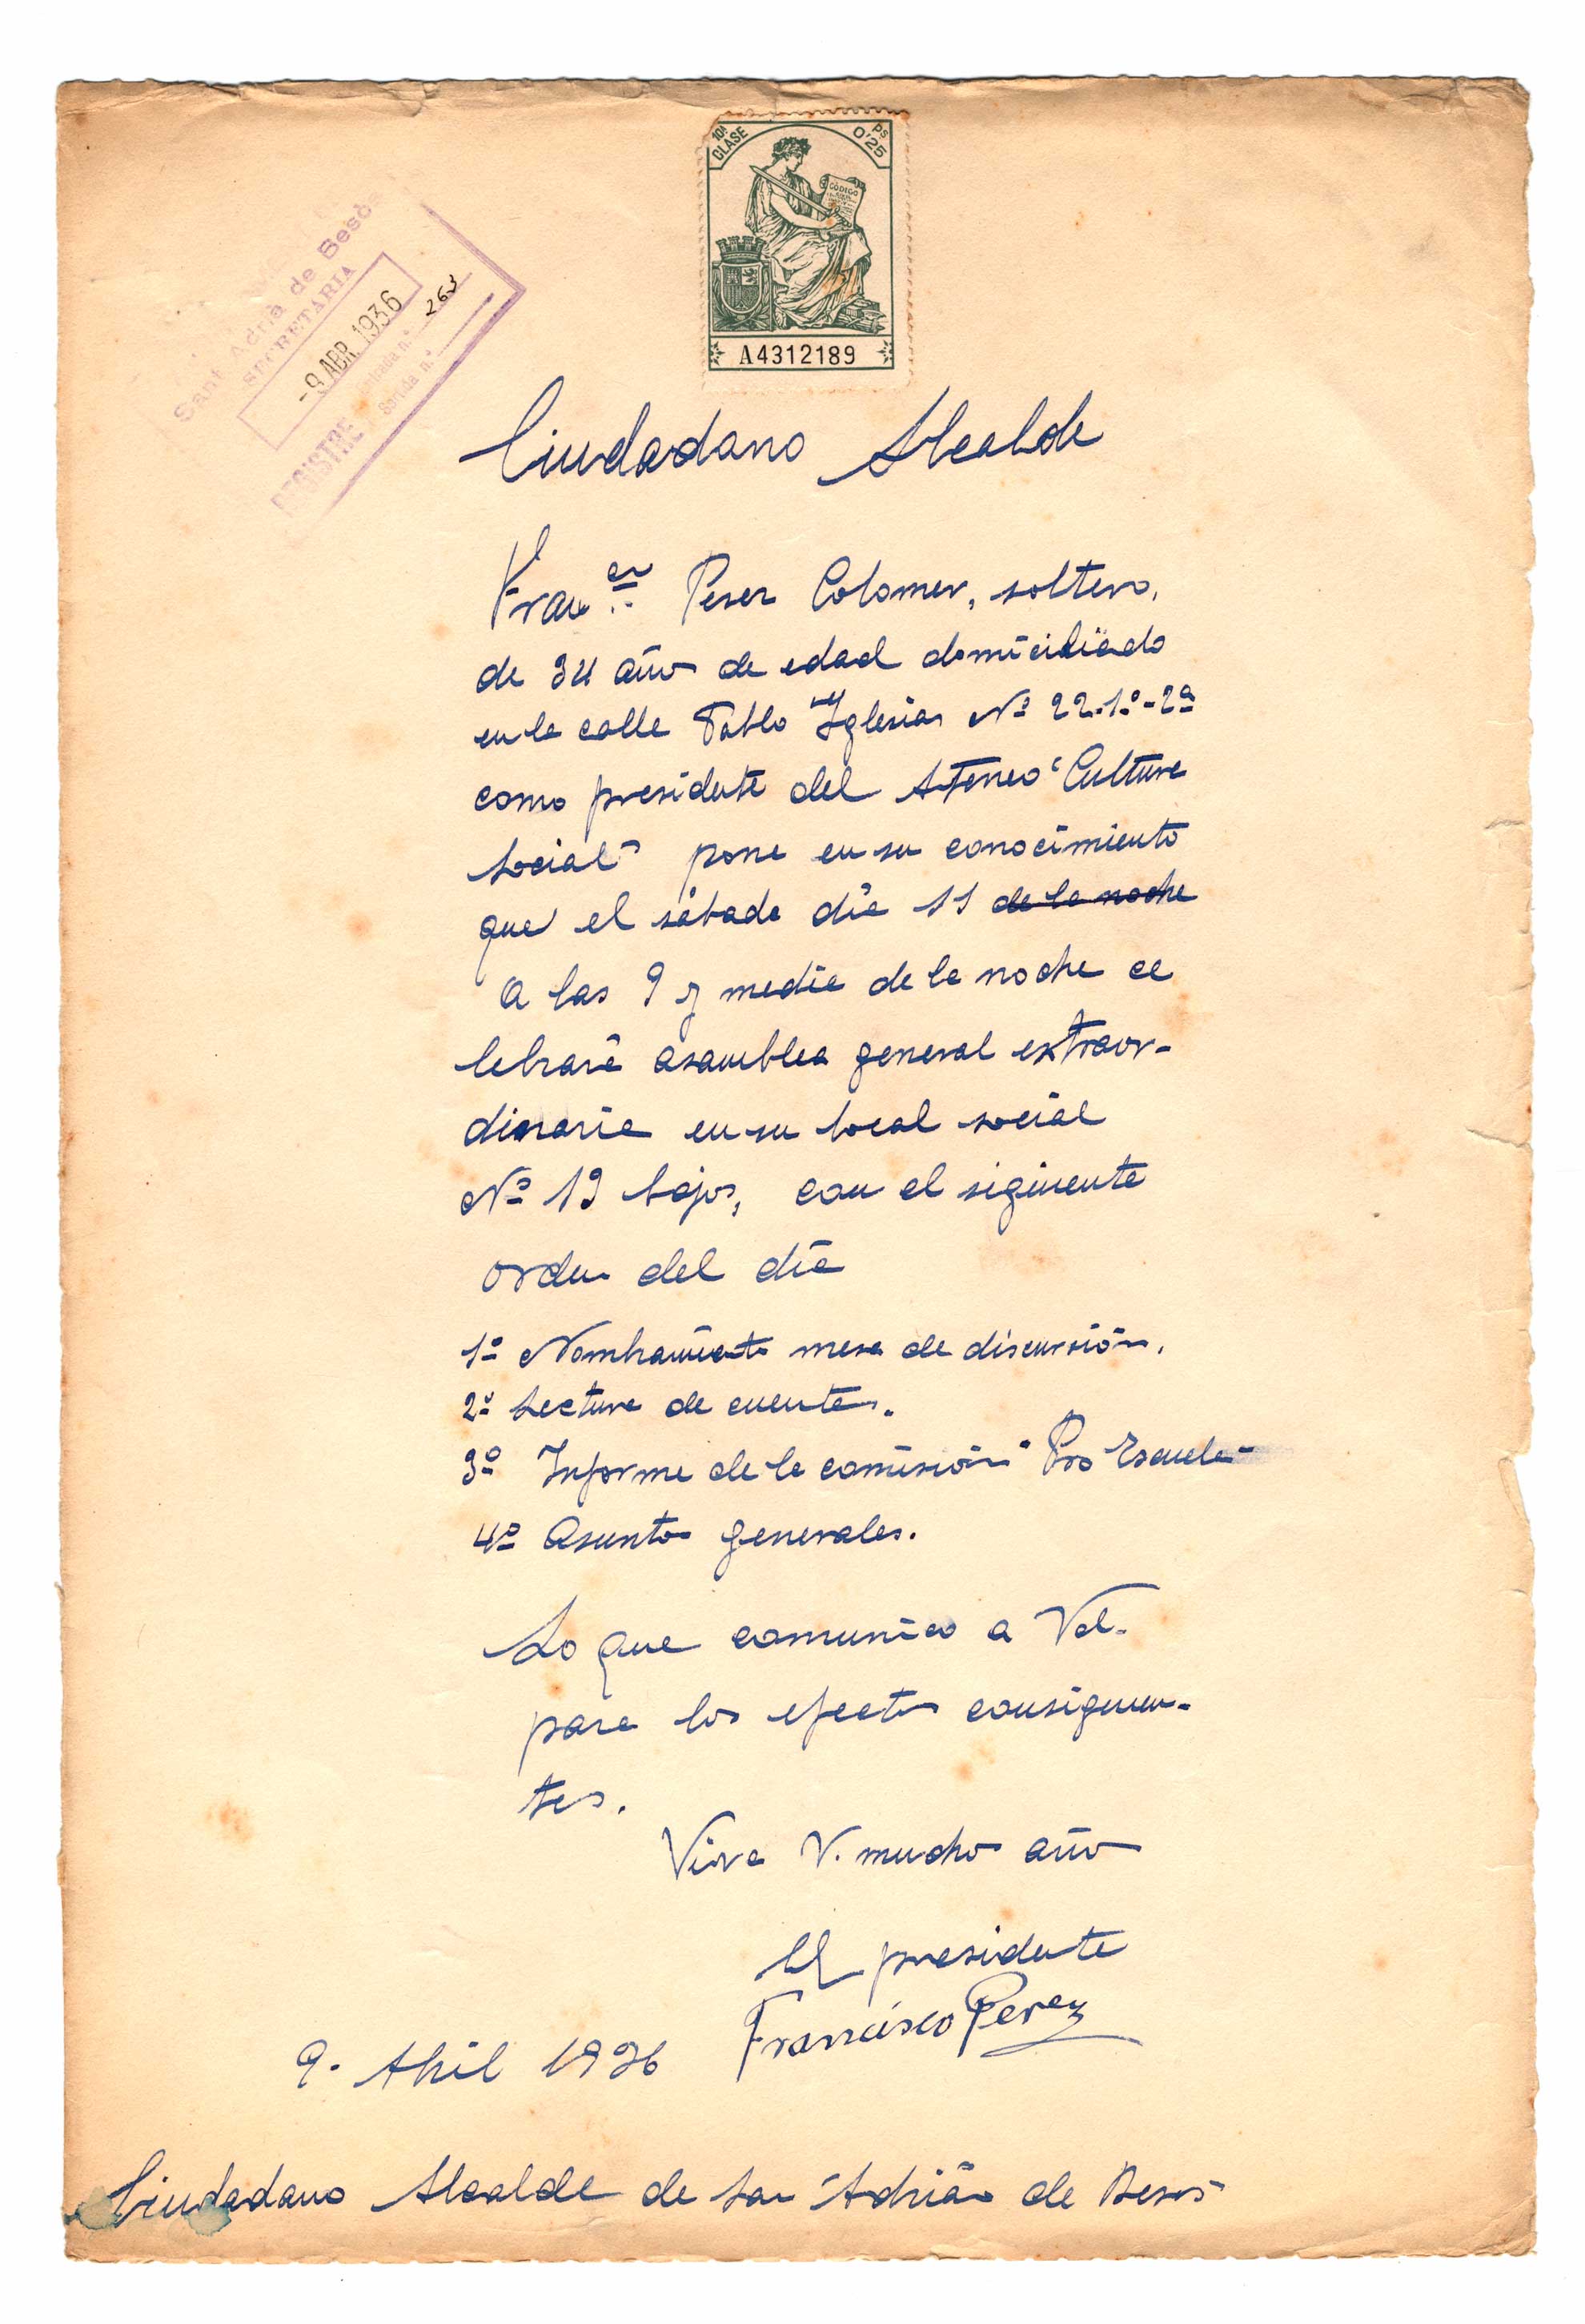 10ª CLASE
Ps 0'25
CODIGO
A4312189
Sant Adrià de Besò
SECRETARIA
-9 ABR. 1936
REGISTRE
Entrada n.º 263
Sortida n.º
Ciudadano Alcalde
Francer Perez Colomer, soltero,
de 34 años de edad domiciliado
en la calle Pablo Iglesias Nº 22-1º-2ª
como presidente del Ateneo "Cultura
Social" pone en su conocimiento
que el sábado día 11 de la noche
A las 9 y media de la noche ce
lebrará asamblea general extraor-
dinaria en su local social
Nº 19 bajos, con el siguiente
orden del día
1º Nombramiento mesa de discusión.
2º Lectura de cuentas.
3º Informe de la comisión "Pro Escuela"
4º Asuntos generales.
Lo que comunico a Vd.
para los efectos consiguien-
tes.
Viva V. muchos años
El presidente
Francisco Perez
9. Abril 1936
Ciudadano Alcalde de San Adrián de Besós